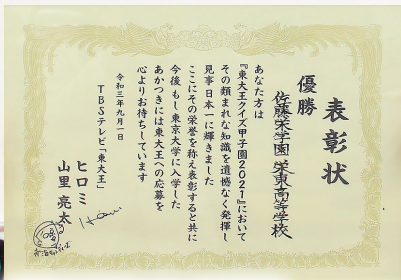 表彰状
優勝
佐藤栄学園 栄東高等学校
あなた方は
『東大王クイズ甲子園2021』において
その類まれな知識を遺憾なく発揮し
見事日本一に輝きました
ここにその栄誉を称え表彰すると共に
今後もし東京大学に入学した
あかつきには東大王への応募を
心よりお待ちしています
令和三年九月一日
TBSテレビ「東大王」
ヒロミ
山里亮太